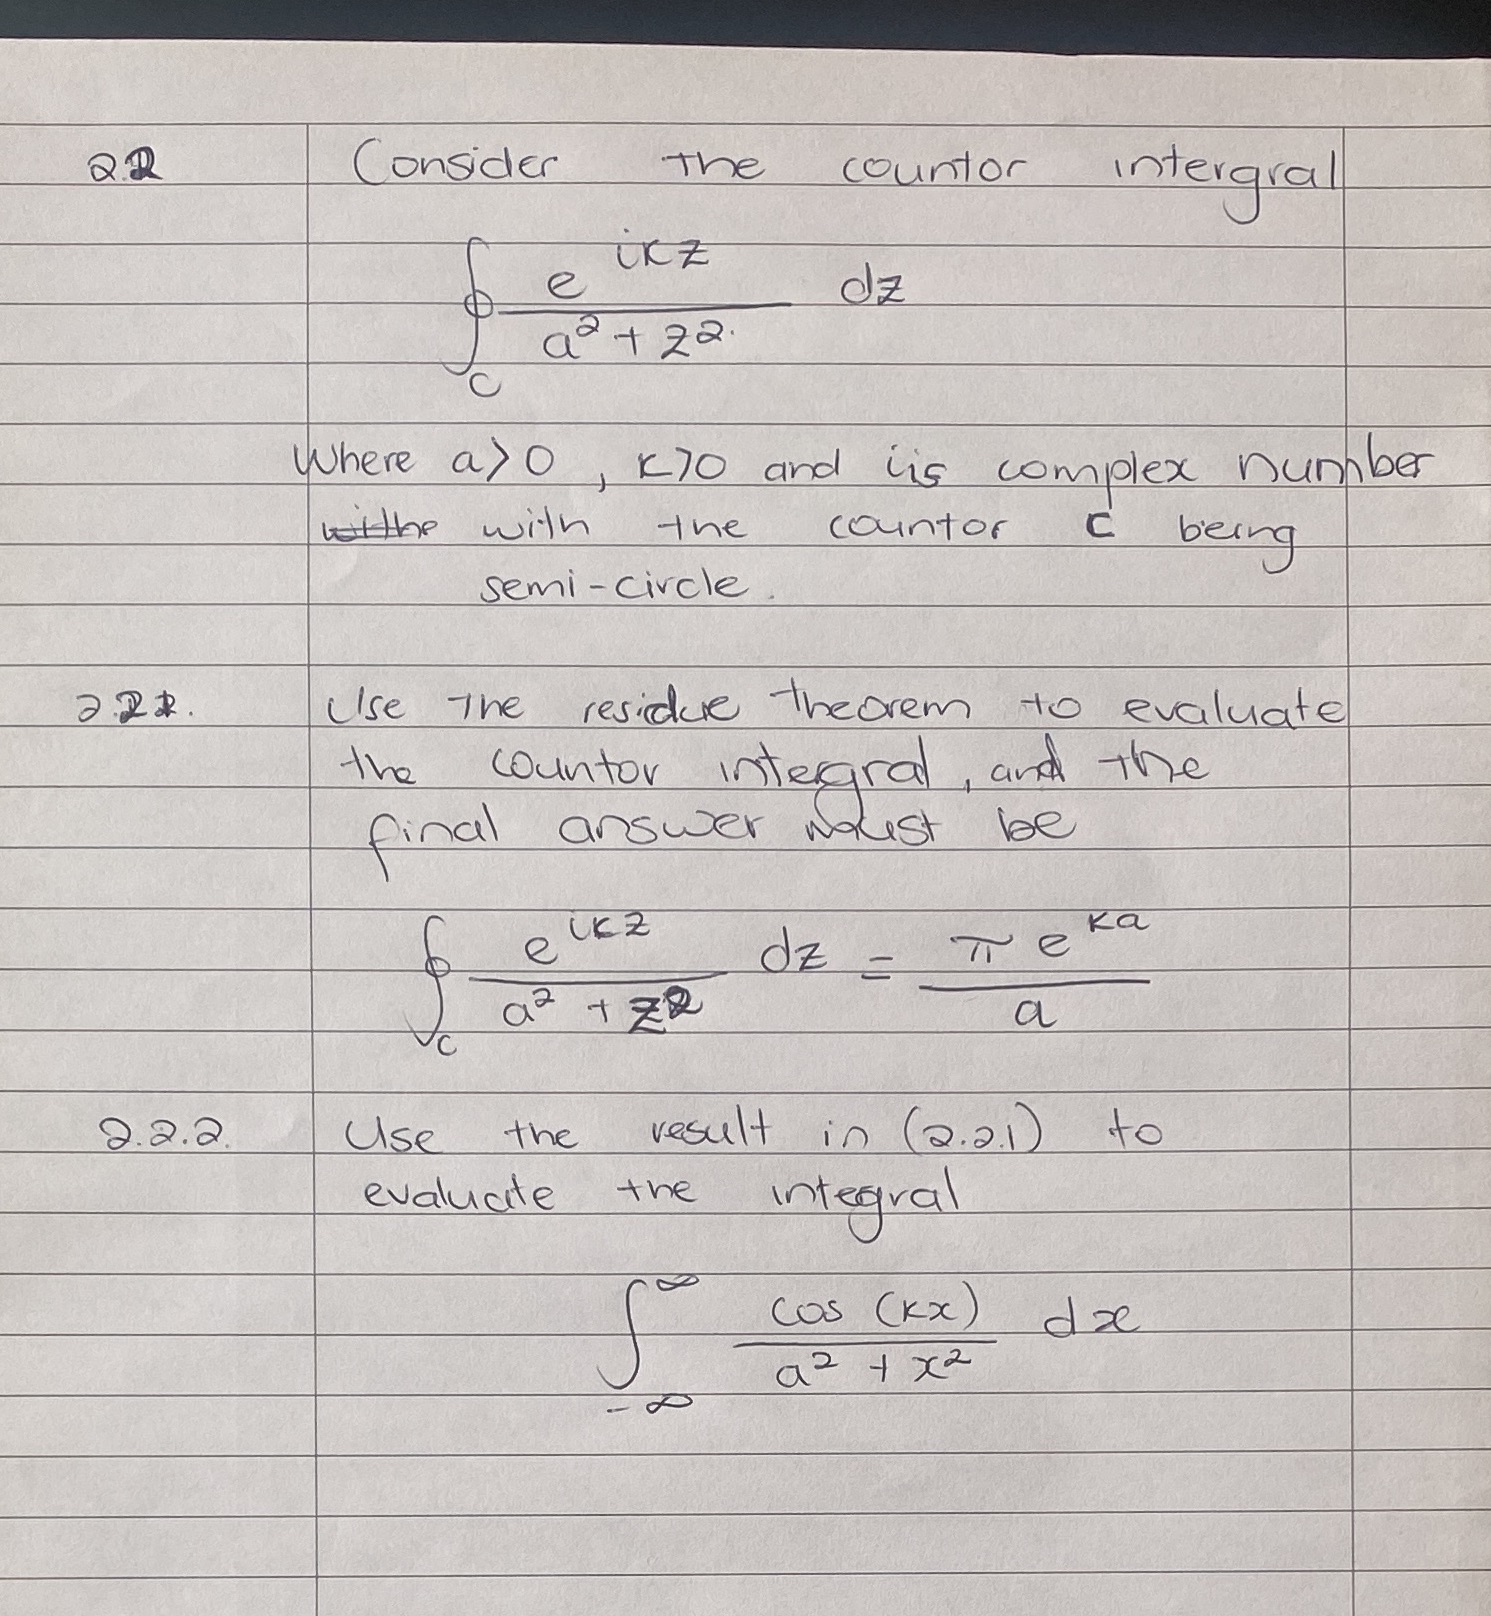 2.2 Consider the countor intergral
∮_C e^{ikz} / (a² + z²) dz
Where a>0, k>0 and i is complex number
withe with the countor C being
semi-circle.
2.2.1. Use the residue theorem to evaluate
the countor intergral, and the
final answer must be
∮_C e^{ikz} / (a² + z²) dz = π e^{ka} / a
2.2.2. Use the result in (2.2.1) to
evaluate the integral
∫_{-∞}^{∞} cos (kx) / (a² + x²) dx